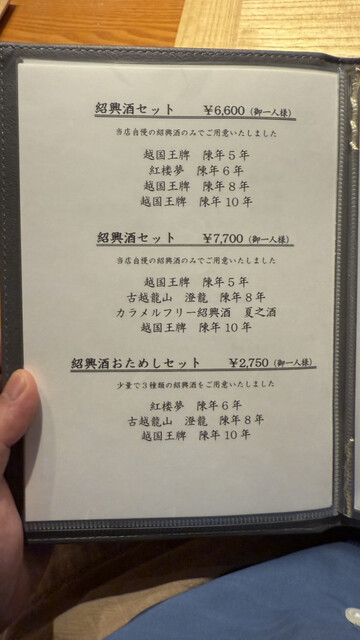 紹興酒セット ￥6,600（御一人様）
当店自慢の紹興酒のみでご用意いたしました
越国王牌 陳年５年
紅楼夢 陳年６年
越国王牌 陳年８年
越国王牌 陳年10年
紹興酒セット ￥7,700（御一人様）
当店自慢の紹興酒のみでご用意いたしました
越国王牌 陳年５年
古越龍山 澄龍 陳年８年
カラメルフリー紹興酒 夏之酒
越国王牌 陳年10年
紹興酒おためしセット ￥2,750（御一人様）
少量で３種類の紹興酒をご用意いたしました
紅楼夢 陳年６年
古越龍山 澄龍 陳年８年
越国王牌 陳年10年